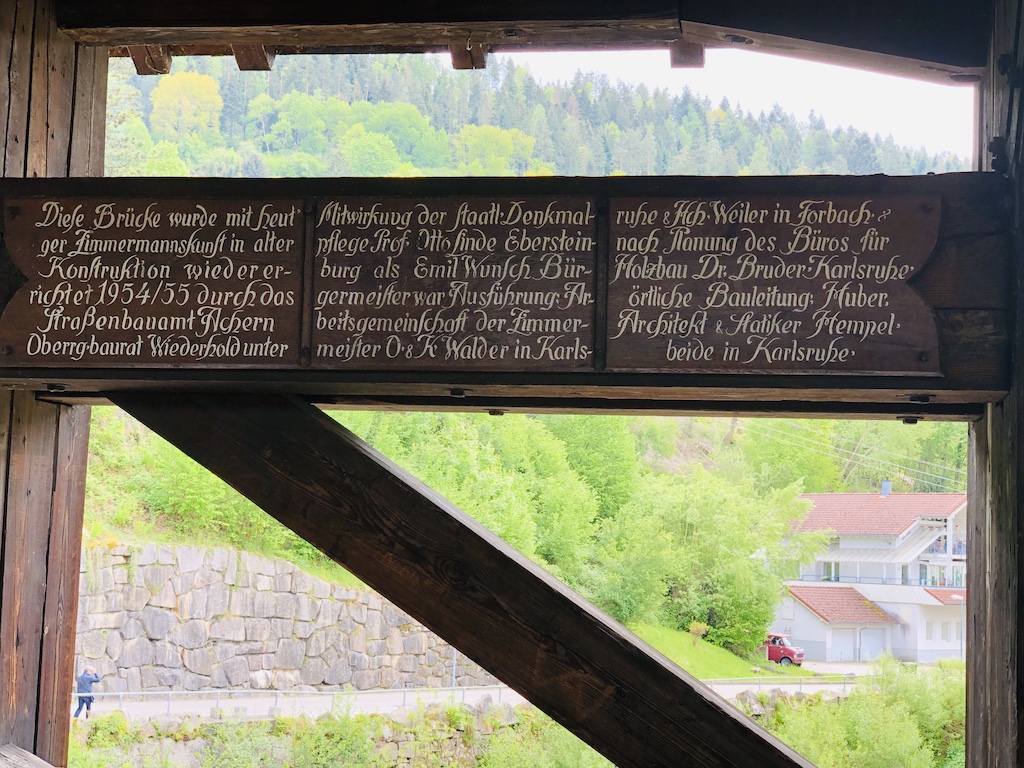 Diese Brücke wurde mit heut'
ger Zimmermannskunst in alter
Konstruktion wieder er-
richtet 1954/55 durch das
Straßenbauamt Achern
Oberrg·baurat Wiederhold unter
Mitwirkung der staatl·Denkmal-
pflege Prof· Otto Linde Eberstein-
burg als Emil Wunsch Bür-
germeister war Ausführung: Ar-
beitsgemeinschaft der Zimmer-
meister O·& K· Walder in Karls-
ruhe & Ach· Weiler in Forbach·&
nach Planung des Büros für
Holzbau Dr. Bruder·Karlsruhe·
örtliche Bauleitung: Huber,
Architekt & Statiker Hempel·
beide in Karlsruhe·